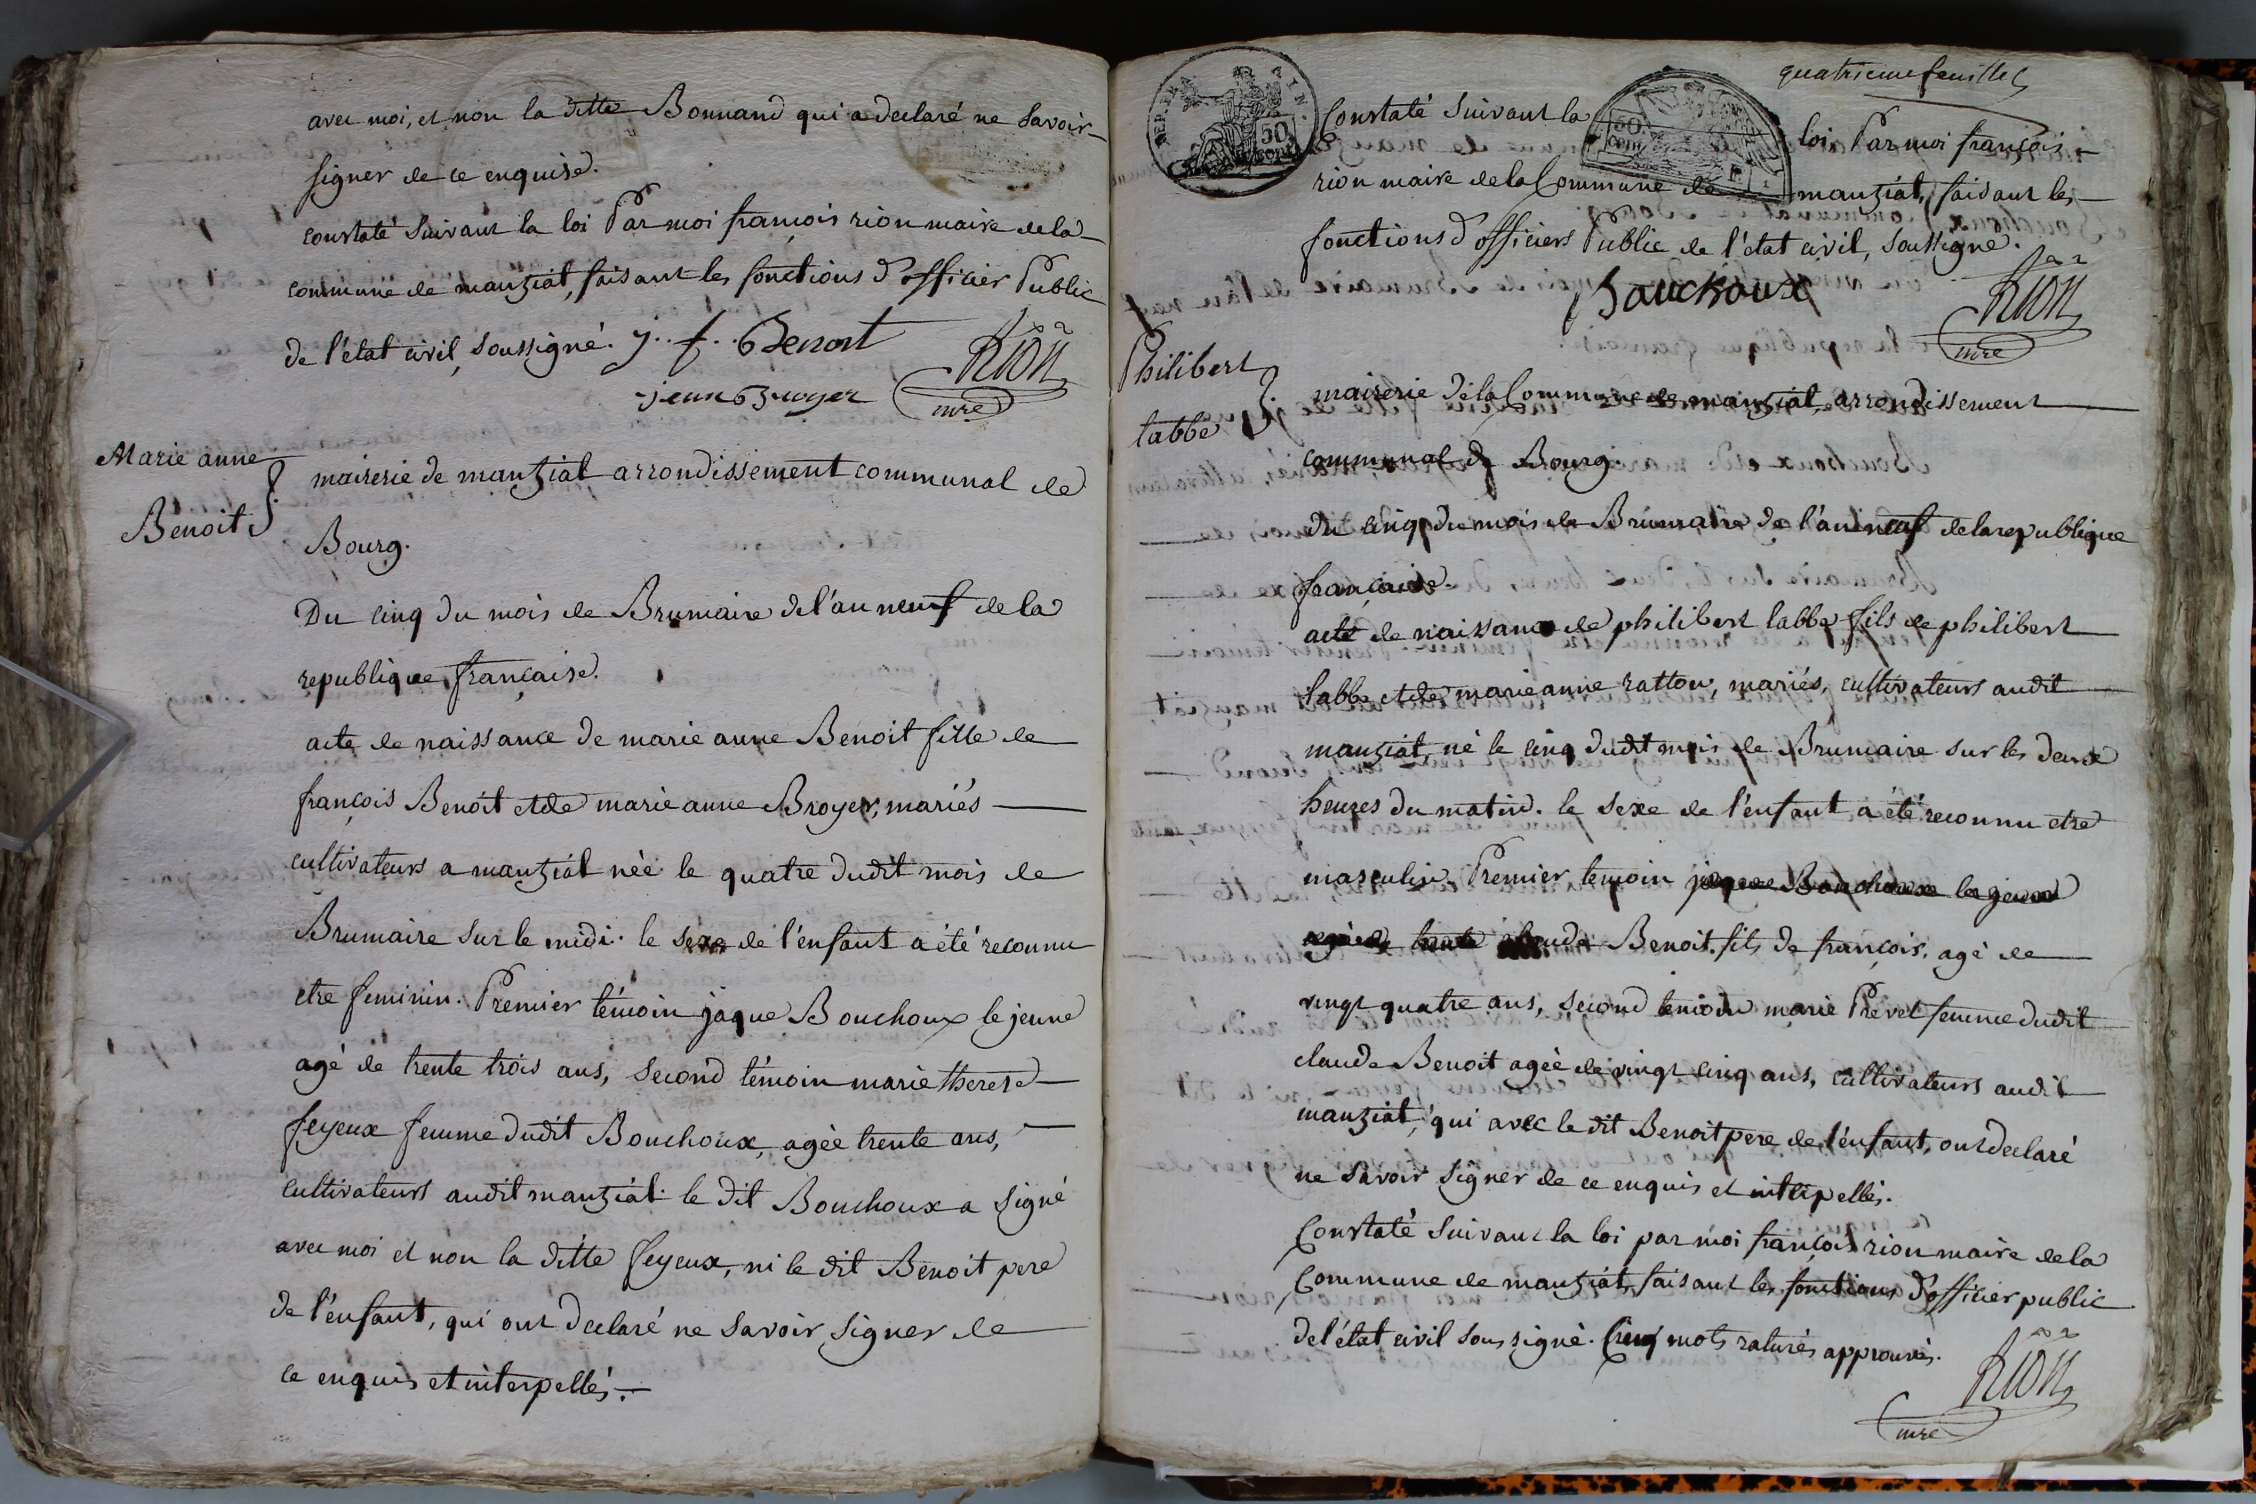 avec moi, et non la ditte Bonnand qui a declaré ne savoir
signer de ce enquise.
constaté suivant la loi Par moi françois rion maire de la
commune de manziat, faisant les fonctions d'officier Public
de l'état civil, soussigné. j. f. Benoit
Rion
jean Broyer
mre
Marie anne
Benoit
mairerie de manziat arrondissement communal de
Bourg.
Du cinq du mois de Brumaire de l'an neuf de la
republique française.
acte de naissance de marie anne Benoit fille de
françois Benoit et de marie anne Broyer, mariés
cultivateurs a manziat née le quatre dudit mois de
Brumaire sur le midi. le sexe de l'enfant a été reconnu
etre feminin. Premier témoin jaque Bouchoux le jeune
agé de trente trois ans, second témoin marie therese
feyeux femme dudit Bouchoux, agée trente ans,
cultivateurs audit manziat. le dit Bouchoux a signé
avec moi et non la ditte feyeux, ni le dit Benoit pere
de l'enfant, qui ont declaré ne savoir signer de
ce enquis et interpellés.
quatrieme feuille
DEP. DE L'AIN.
50 cent
50 cent
Constaté suivant la loi Par moi françois
rion maire de la Commune de manziat, faisant les
fonctions d'officiers Public de l'état civil, soussigné.
Bouchoux
Rion
mre
Philibert
labbe
mairerie de la Commune de manziat, arrondissement
communal de Bourg
du cinq du mois de Brumaire de l'an neuf de la republique
française.
acte de naissance de philibert labbe fils de philibert
labbe et de marie anne ratton, mariés, cultivateurs audit
manziat, né le cinq dudit mois de Brumaire sur les deux
heures du matin. le sexe de l'enfant a été reconnu etre
masculin. Premier temoin jaque Bouchoux le jeune
agé de trente claude Benoit, fils de françois, agé de
vingt quatre ans, second temoin marie Prevel femme dudit
claude Benoit agée de vingt cinq ans, cultivateurs audit
manziat, qui avec le dit Benoit pere de l'enfant, ont declaré
ne savoir signer de ce enquis et interpellés.
Constaté suivant la loi par moi françois rion maire de la
Commune de manziat, faisant les fonctions d'officier public
de l'état civil soussigné. Cinq mots raturés approuvés.
Rion
mre